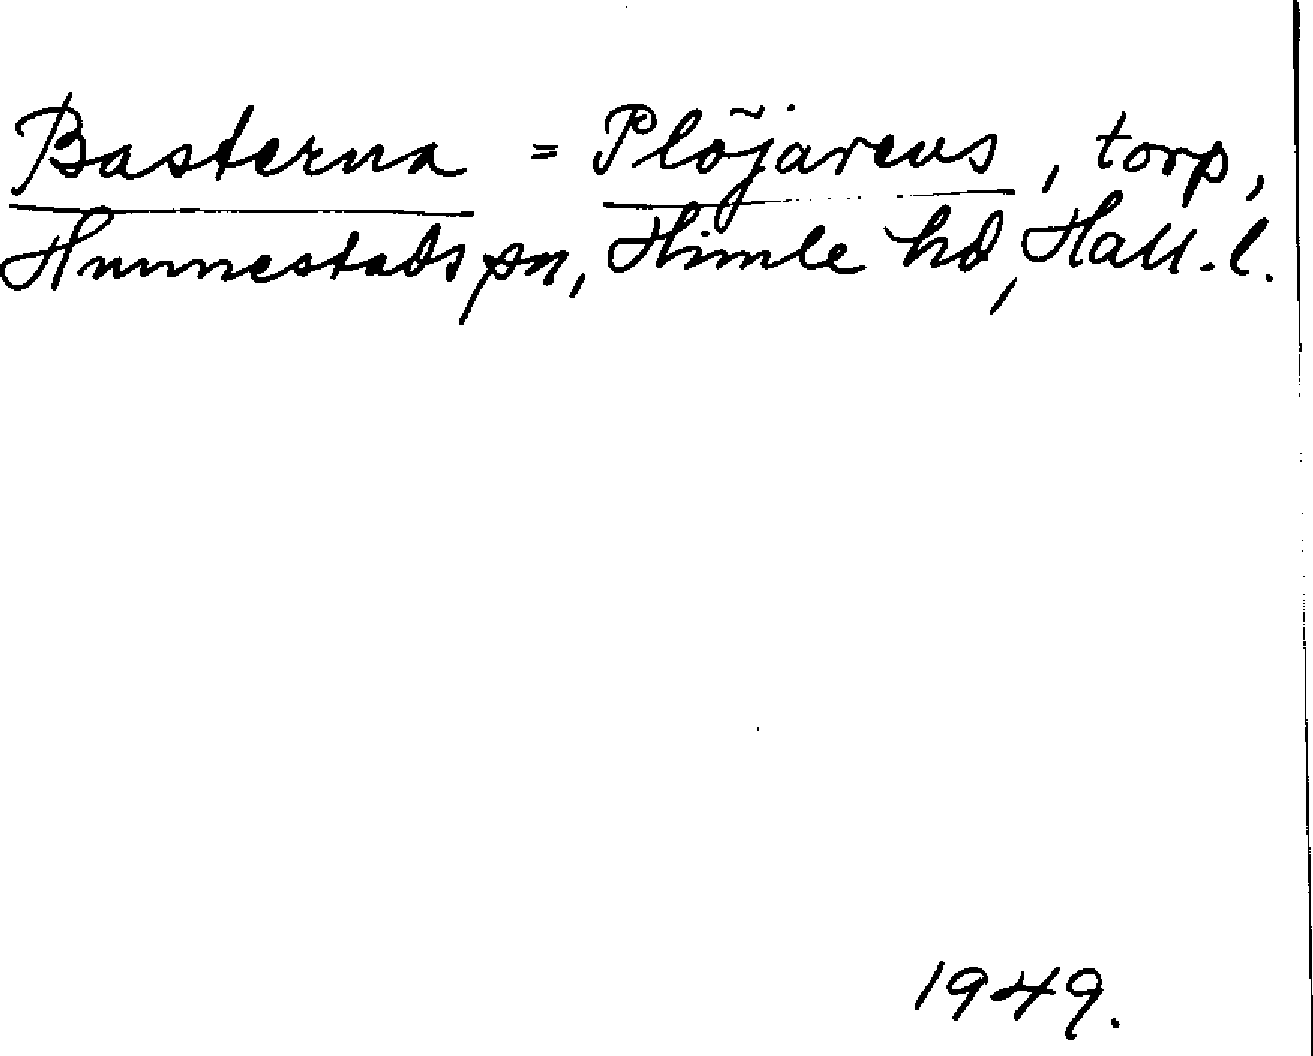 Basterna = Plöjarens, torp,
Hunnestads sn, Himle hd, Hall. l.
1949.